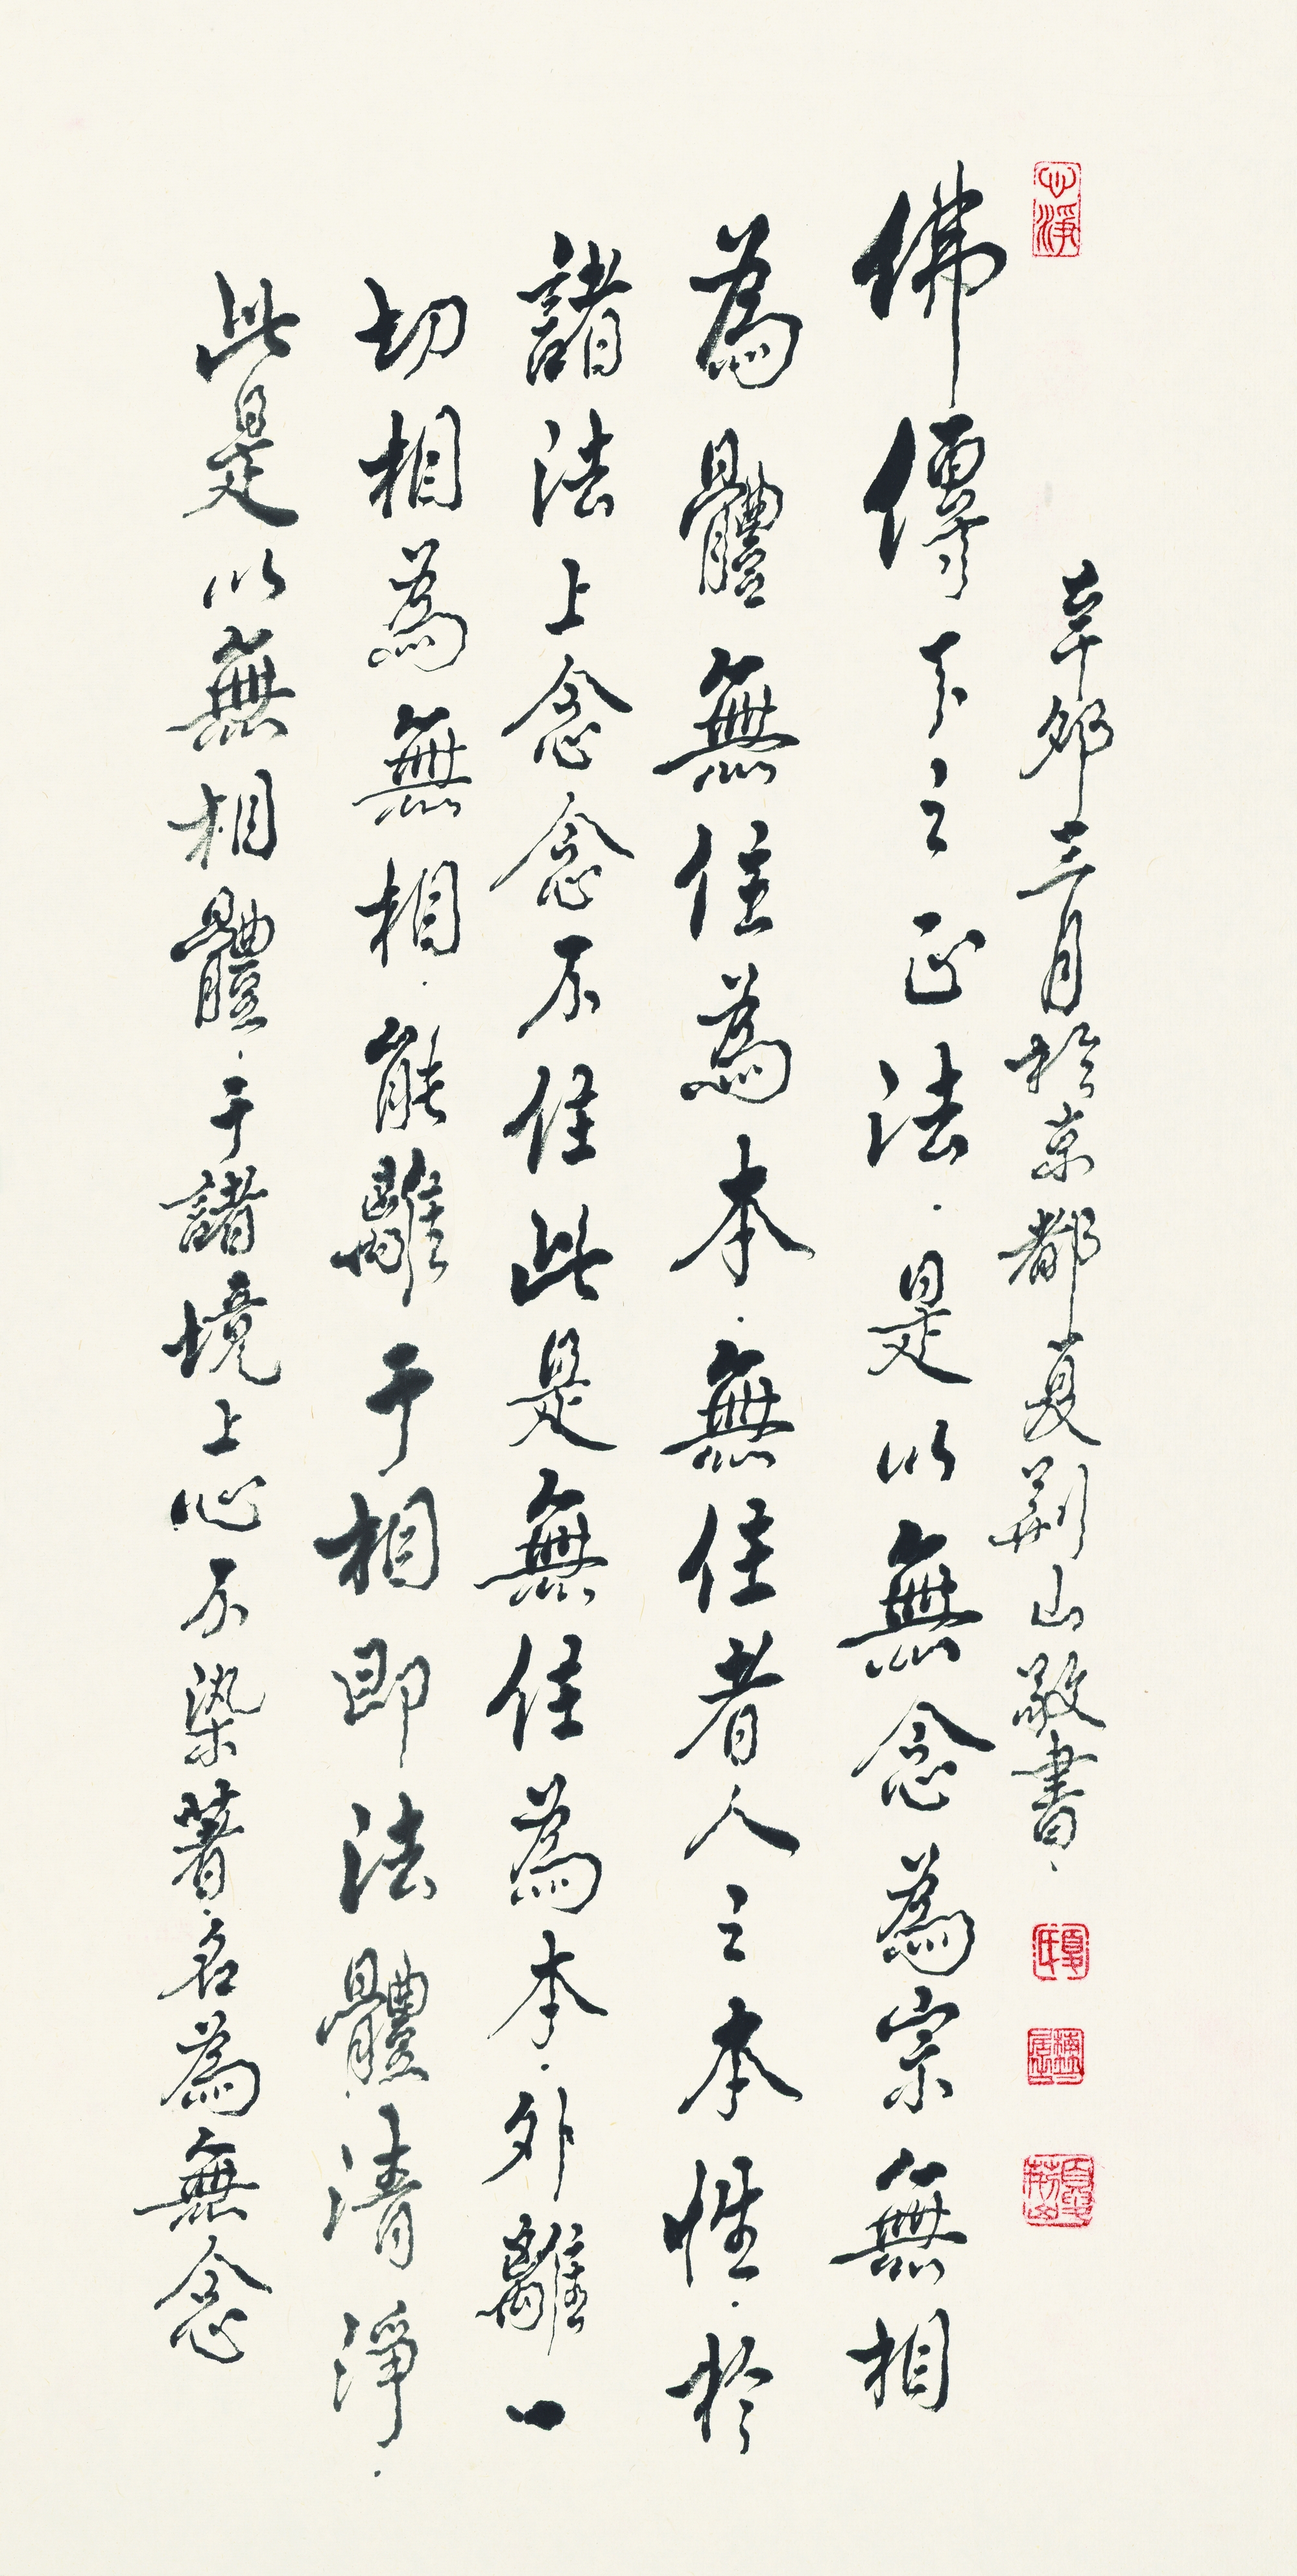 心淨
辛卯三月於京都夏荊山敬書·
夏氏
夏荊山
佛傳下之正法·是以無念為宗無相
為體無住為本·無住者人之本性·於
諸法上念念不住此是無住為本·外離一
切相為無相·能離于相即法體清淨·
此是以無相體·于諸境上心不染著·名為無念